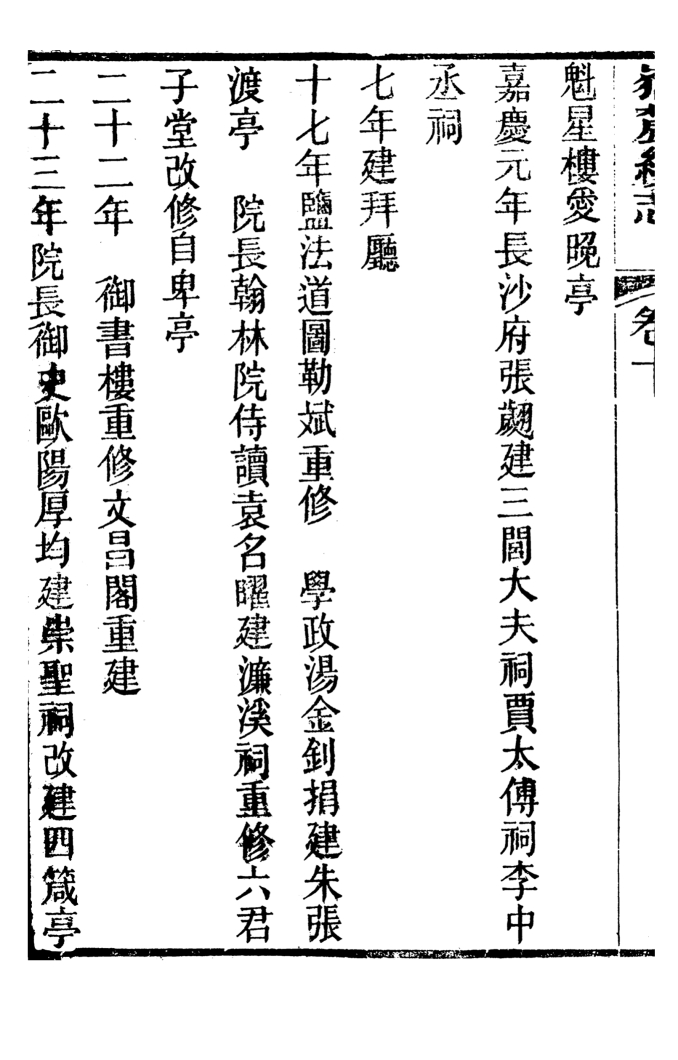 嶽麓續志　卷一
魁星樓愛晚亭
嘉慶元年長沙府張翽建三閭大夫祠賈太傅祠李中
丞祠
七年建拜廳
十七年鹽法道圖勒斌重修　學政湯金釗捐建朱張
渡亭　院長翰林院侍讀袁名曜建濂溪祠重修六君
子堂改修自卑亭
二十二年　御書樓重修文昌閣重建
二十三年院長御史歐陽厚均建崇聖祠改建四箴亭